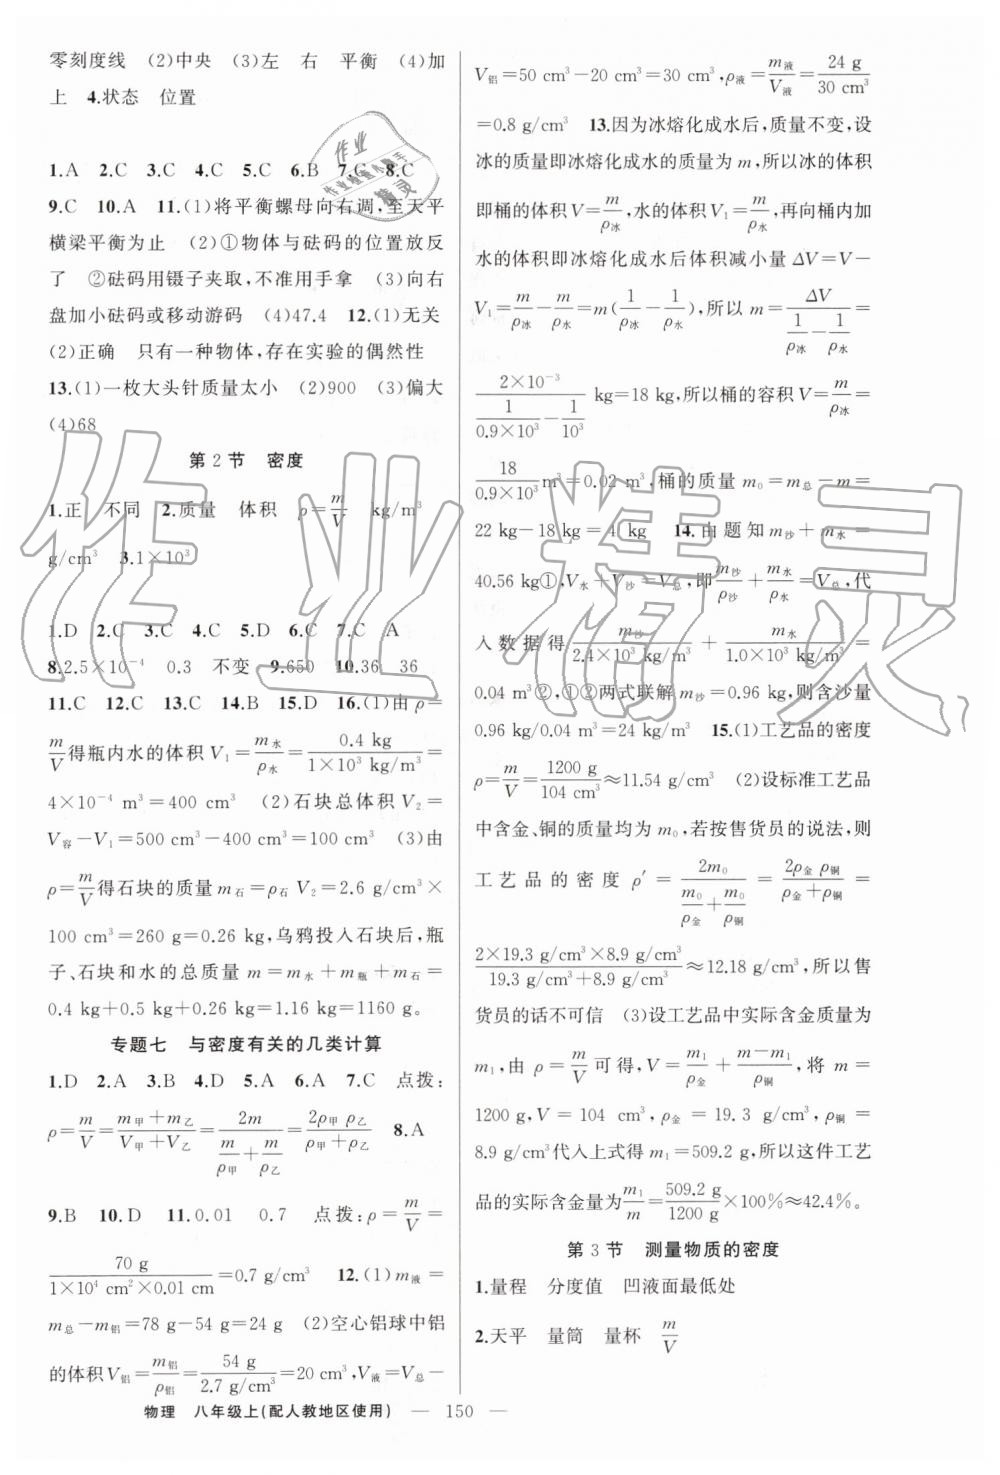 零刻度线 (2)中央 (3)左 右 平衡 (4)加
上 4.状态 位置
1.A 2.C 3.C 4.C 5.C 6.B 7.C 8.C
9.C 10.A 11.(1)将平衡螺母向右调,至天平
横梁平衡为止 (2)①物体与砝码的位置放反
了 ②砝码用镊子夹取,不准用手拿 (3)向右
盘加小砝码或移动游码 (4)47.4 12.(1)无关
(2)正确 只有一种物体,存在实验的偶然性
13.(1)一枚大头针质量太小 (2)900 (3)偏大
(4)68
第2节 密度
1.正 不同 2.质量 体积 ρ=m/V kg/m³
g/cm³ 3.1×10³
1.D 2.C 3.C 4.C 5.D 6.C 7.C A
8.2.5×10⁻⁴ 0.3 不变 9.650 10.36 36
11.C 12.C 13.C 14.B 15.D 16.(1)由ρ=
m/V得瓶内水的体积V₁=m水/ρ水=0.4 kg/(1×10³ kg/m³)=
4×10⁻⁴ m³=400 cm³ (2)石块总体积V₂=
V容-V₁=500 cm³-400 cm³=100 cm³ (3)由
ρ=m/V得石块的质量m石=ρ石V₂=2.6 g/cm³×
100 cm³=260 g=0.26 kg,乌鸦投入石块后,瓶
子、石块和水的总质量m=m水+m瓶+m石=
0.4 kg+0.5 kg+0.26 kg=1.16 kg=1160 g。
专题七 与密度有关的几类计算
1.D 2.A 3.B 4.D 5.A 6.A 7.C 点拨:
ρ=m/V=(m甲+m乙)/(V甲+V乙)=2m/(m/ρ甲+m/ρ乙)=2ρ甲ρ乙/(ρ甲+ρ乙) 8.A
9.B 10.D 11.0.01 0.7 点拨:ρ=m/V=
70 g/(1×10⁴ cm²×0.01 cm)=0.7 g/cm³ 12.(1)m液=
m总-m铝=78 g-54 g=24 g (2)空心铝球中铝
的体积V铝=m铝/ρ铝=54 g/(2.7 g/cm³)=20 cm³,V液=V总-
V铝=50 cm³-20 cm³=30 cm³,ρ液=m液/V液=24 g/30 cm³
=0.8 g/cm³ 13.因为冰熔化成水后,质量不变,设
冰的质量即冰熔化成水的质量为m,所以冰的体积
即桶的体积V=m/ρ冰,水的体积V₁=m/ρ水,再向桶内加
水的体积即冰熔化成水后体积减小量ΔV=V-
V₁=m/ρ冰-m/ρ水=m(1/ρ冰-1/ρ水),所以m=ΔV/(1/ρ冰-1/ρ水)=
2×10⁻³/(1/(0.9×10³)-1/10³) kg=18 kg,所以桶的容积V=m/ρ冰=
18/(0.9×10³)m³=0.02 m³,桶的质量m₀=m总-m=
22 kg-18 kg=4 kg 14.由题知m沙+m水=
40.56 kg①,V水+V沙=V总,即m沙/ρ沙+m水/ρ水=V总,代
入数据得m沙/(2.4×10³ kg/m³)+m水/(1.0×10³ kg/m³)=
0.04 m³②,①②两式联解m沙=0.96 kg,则含沙量
0.96 kg/0.04 m³=24 kg/m³ 15.(1)工艺品的密度
ρ=m/V=1200 g/104 cm³≈11.54 g/cm³ (2)设标准工艺品
中含金、铜的质量均为m₀,若按售货员的说法,则
工艺品的密度ρ′=2m₀/(m₀/ρ金+m₀/ρ铜)=2ρ金ρ铜/(ρ金+ρ铜)=
(2×19.3 g/cm³×8.9 g/cm³)/(19.3 g/cm³+8.9 g/cm³)≈12.18 g/cm³,所以售
货员的话不可信 (3)设工艺品中实际含金质量为
m₁,由ρ=m/V可得,V=m₁/ρ金+(m-m₁)/ρ铜,将m=
1200 g,V=104 cm³,ρ金=19.3 g/cm³,ρ铜=
8.9 g/cm³代入上式得m₁=509.2 g,所以这件工艺
品的实际含金量为m₁/m=509.2 g/1200 g×100%≈42.4%。
第3节 测量物质的密度
1.量程 分度值 凹液面最低处
2.天平 量筒 量杯 m/V
物理 八年级上(配人教地区使用) — 150 —
作业精灵